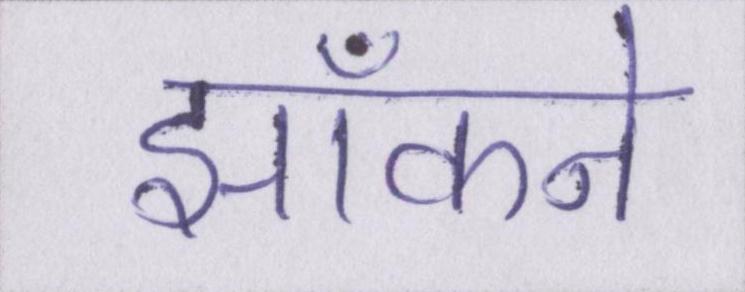 झाँकने